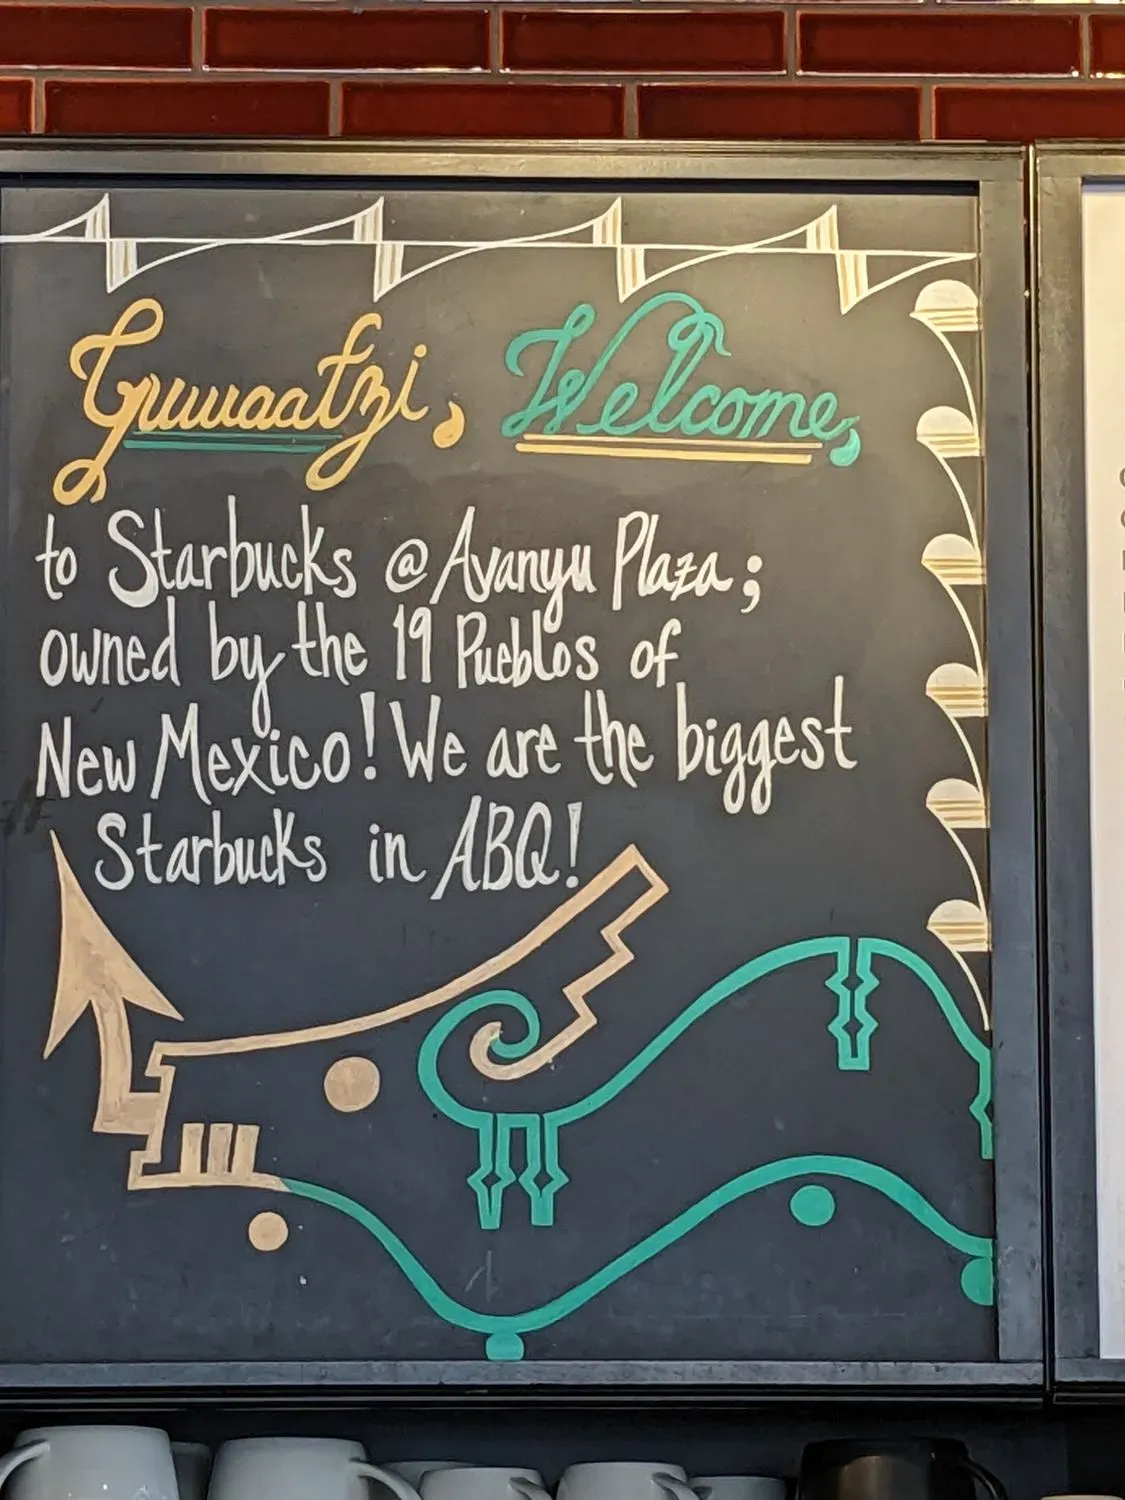 Guwaatzi, Welcome,
to Starbucks @ Avanyu Plaza;
owned by the 19 Pueblos of
New Mexico! We are the biggest
Starbucks in ABQ!